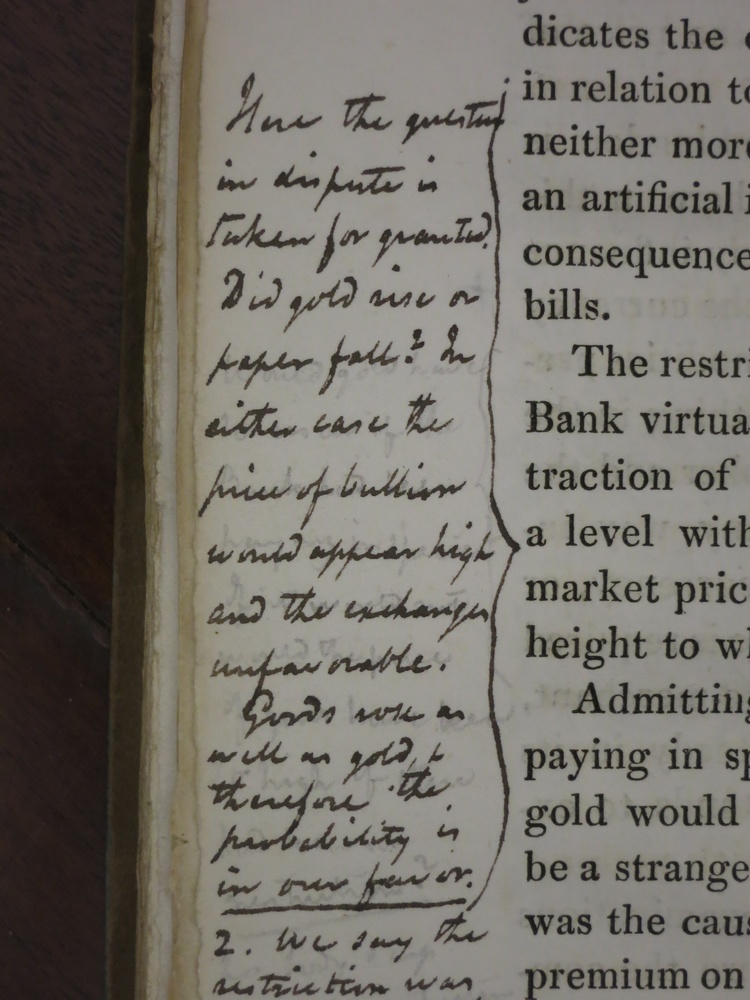 Here the question
in dispute is
taken for granted.
Did gold rise or
paper fall? In
either case the
price of bullion
would appear high
and the exchanges
unfavorable.
Goods rose as
well as gold, &
therefore the
probability is
in our favor.
2. We say the
restriction was
dicates the
in relation to
neither more
an artificial i
consequence
bills.
The restri
Bank virtua
traction of
a level with
market pric
height to wh
Admitting
paying in sp
gold would
be a strange
was the caus
premium on